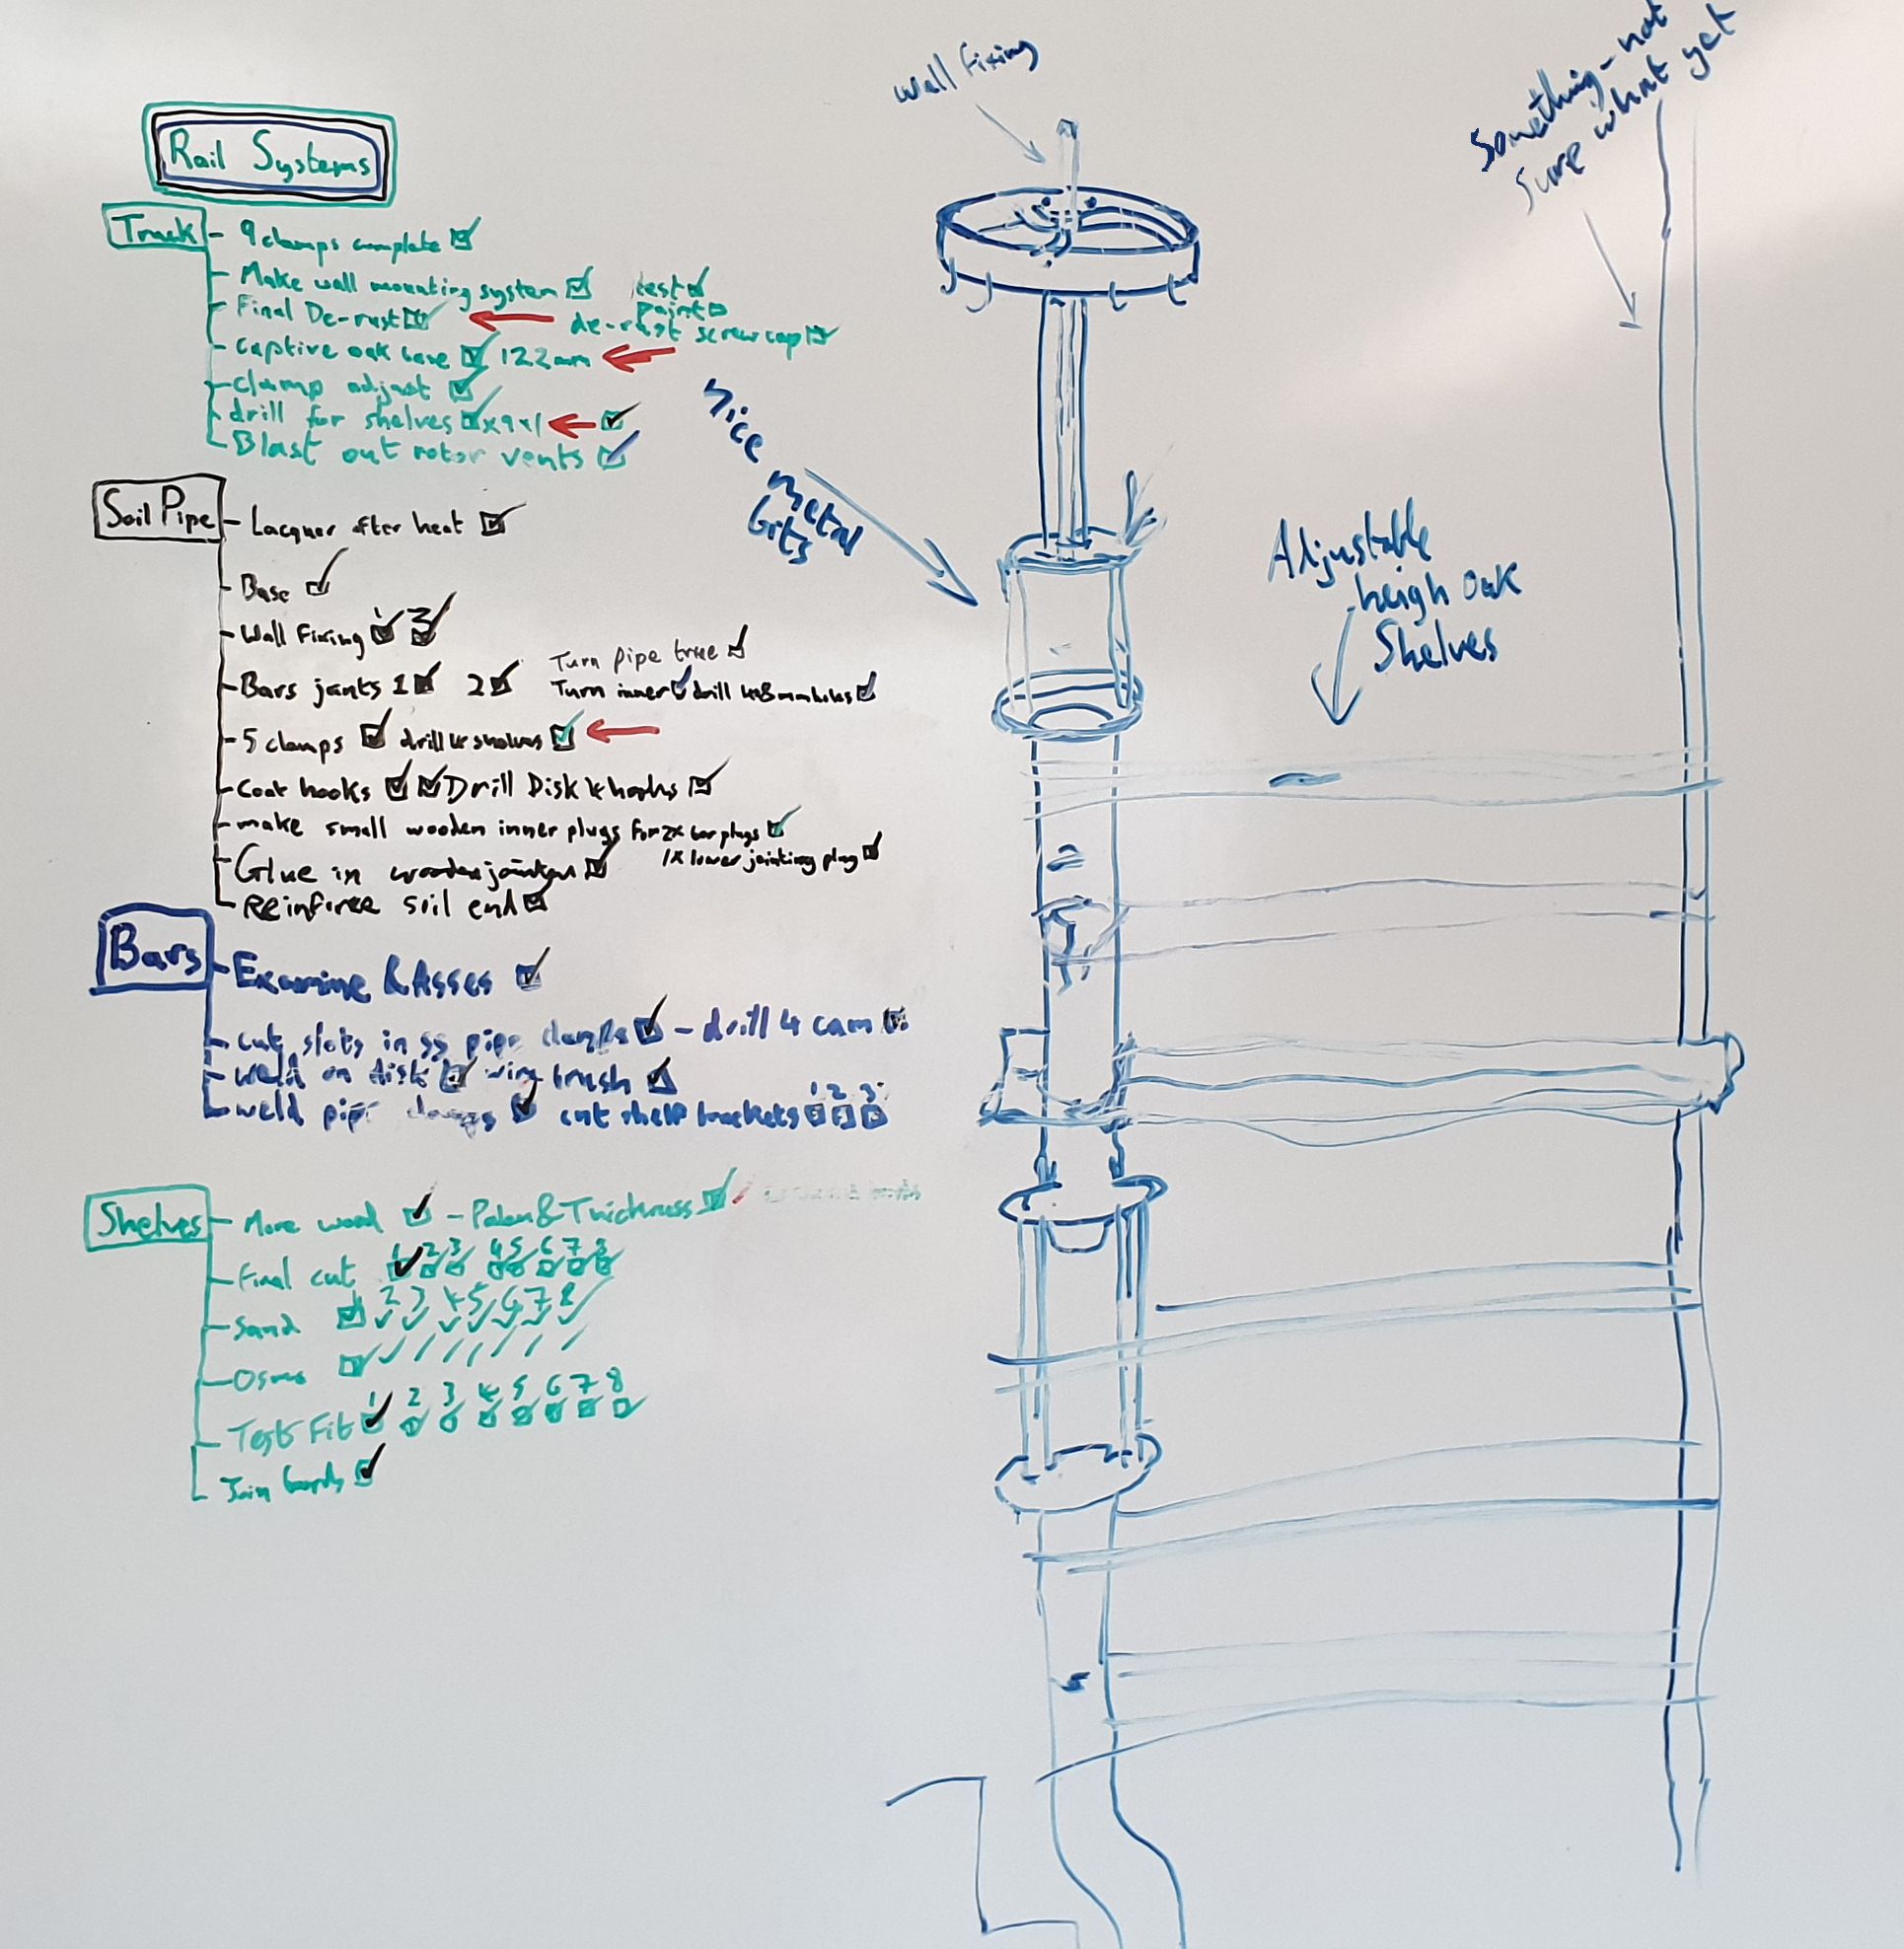 Rail Systems
Track
- 9 clamps complete ☑
- Make wall mounting system ☑ test ☑
paint
- Final De-rust ☑ ← de-rust screw cap ☑
- captive oak base ☑ 122mm ←
- clamp adjust ☑
- drill for shelves ☑ x9 x1 ← ☑
- Blast out rotor vents ☑
Soil Pipe
- Lacquer after heat ☑
- Base ☑
- Wall Fixing 1 ☑ 3 ☑
Turn pipe true ☑
- Bars joints 1 ☑ 2 ☑ Turn inner ☑ drill 4x8mm holes ☑
- 5 clamps ☑ drill 4 shelves ☑ ←
- Coat hooks ☑ ☑ Drill Disk 4 hooks ☑
- make small wooden inner plugs for 2x bar plugs ☑
1x lower jointing plug ☑
- Glue in wooden ☑
- Reinforce soil end ☑
Bars
- Examine & Asses ☑
- cut slots in ss pipe clamps ☑ - drill 4 cam ☑
- weld on disk ☑ wire brush ☑
- weld pipe clamps ☑ cut shelf brackets 1 2 3
Shelves
- More wood ☑ - & Thickness ☑
- Final cut 1 2 3 4 5 6 7 8
- Sand ☑ 2 3 4 5 6 7 8
- Osmo ☑
- Test Fit 1 2 3 4 5 6 7 8
Join boards ☑
Wall fixing
Nice
metal
bits
Something - not
sure what yet
Adjustable
heigh oak
Shelves